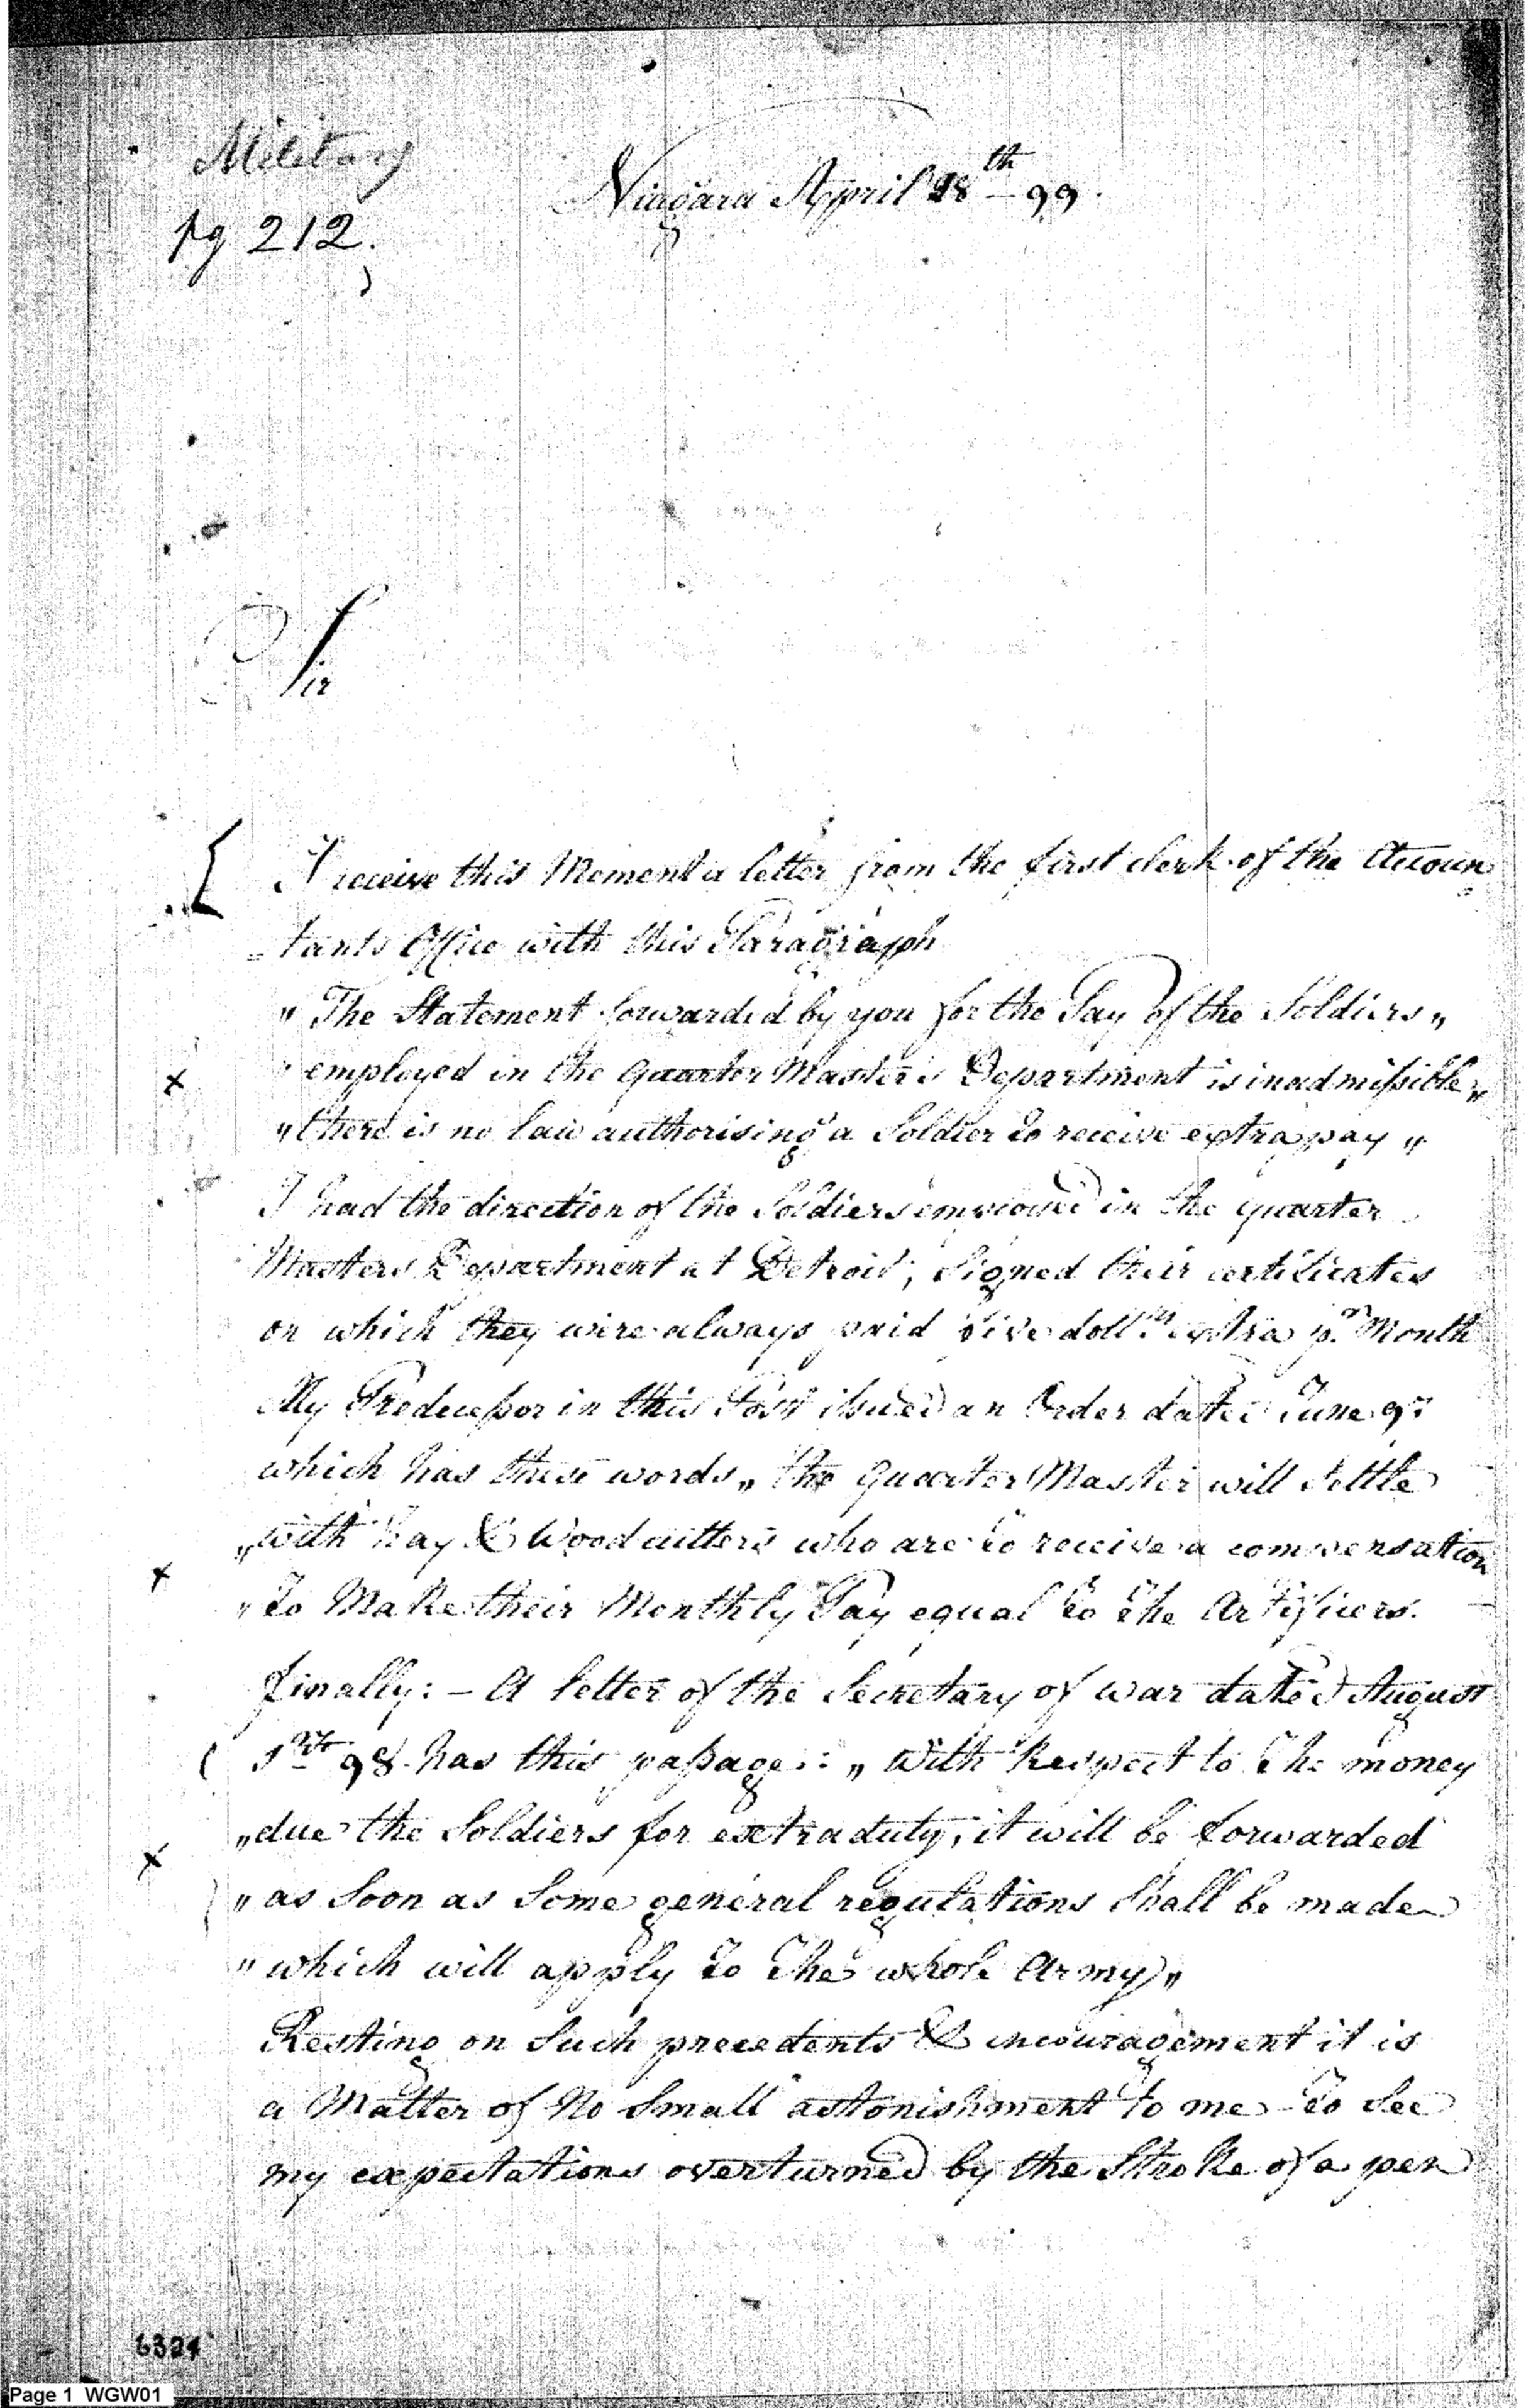 Military
pg 212.
Niagara April 28th - 99.
Sir
I receive this Moment a letter from the first clerk of the Accoun
tants Office with this Paragraph
" The Statement forwarded by you for the Pay of the Soldiers "
employed in the Quarter Masters Department is inadmissible "
" there is no law authorising a Soldier to receive extra pay "
I had the direction of the Soldiers employed in the quarter
Masters Department at Detroit; Signed their certificates
on which they were always paid five doll.rs extra p.r Month
My Predecessor in this Post issued an Order dated June
which has these words " the Quarter Master will Settle
" with hay & Wood cutters who are to receive a compensation
" to Make their Monthly Pay equal to the Artificers.
finally: - A letter of the Secretary of war dated August
98. has this passage: " With Respect to the money
" due the Soldiers for extra duty, it will be forwarded
" as Soon as Some general regulations Shall be made
" which will apply to the whole Army "
Resting on Such precedents & encouragement it is
a Matter of No Small astonishment to me to See
my expectations overturned by the Stroke of a pen
6324
Page 1 WGW01